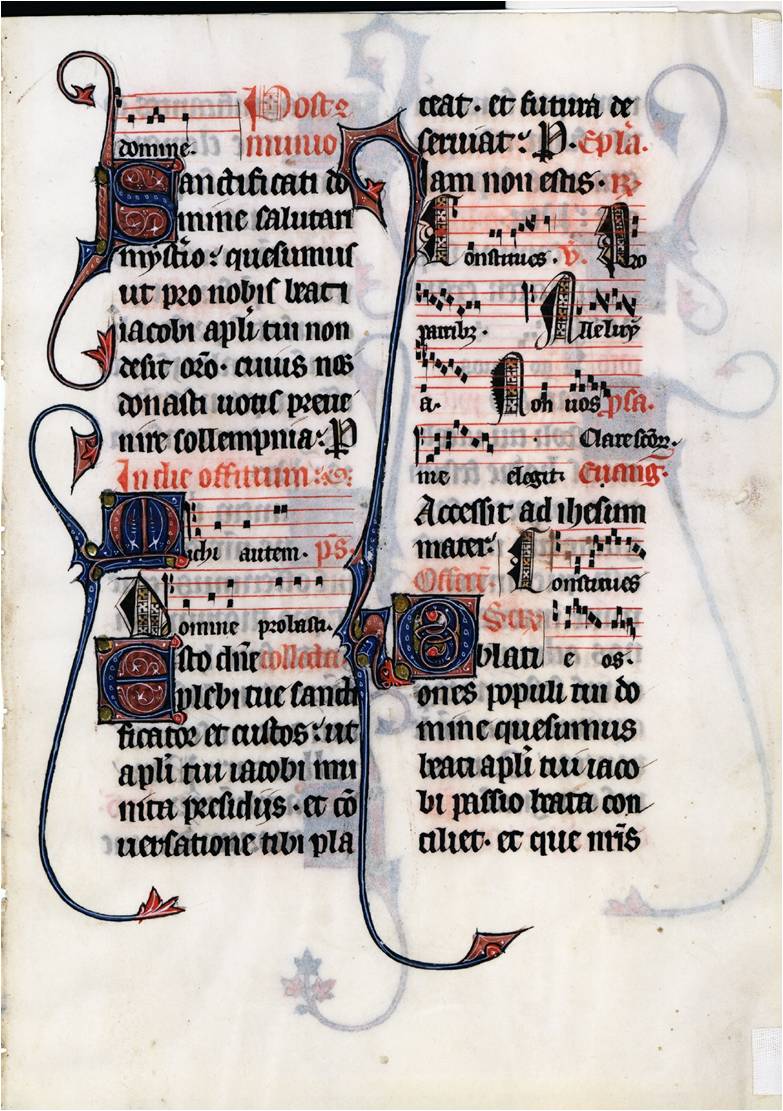 Postc
domine. munio
Sanctificati do
mine salutari
mysterio: quesumus
ut pro nobis beati
iacobi apli tui non
desit oro. cuius nos
donasti uotis preue
nire sollempnia: P
In die offitium
Michi autem. ps.
Domine probasti.
Esto dne collecta
plebi tue sancti
ficator et custos: ut
apli tui iacobi mu
nita presidijs. et co
uersatione tibi pla
ceat. et futura de
seruiat: P. Epla.
Iam non estis. R
Constitues. V. Pro
patribz. Alleluy
a. Non uos psa.
Clarescor.
me elegit. Euang.
Accessit ad ihesum
mater. Constitues
Offert.
Secr
Oblati e os.
ones populi tui do
mine quesumus
beati apli tui iaco
bi passio beata con
ciliet. et que nris